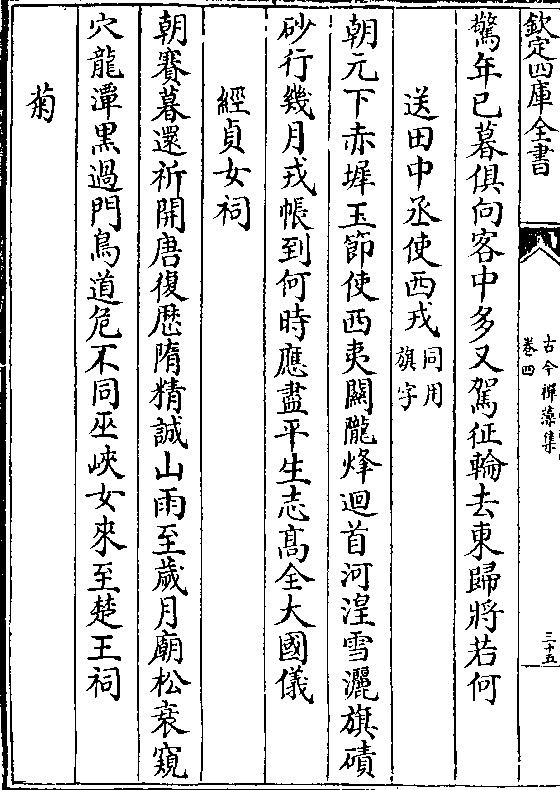 欽定四庫全書
古今禪藻集
卷四
三十五
驚年已暮俱向客中多又駕征輪去東歸將若何
送田中丞使西戎同用旗字
朝元下赤墀玉節使西夷關隴烽迴首河湟雪灑旗磧
砂行幾月戎帳到何時應盡平生志髙全大國儀
經貞女祠
朝賽暮還祈開唐復歴隋精誠山雨至歲月廟松衰窺
穴龍潭黒過門鳥道危不同巫峽女來至楚王祠
菊